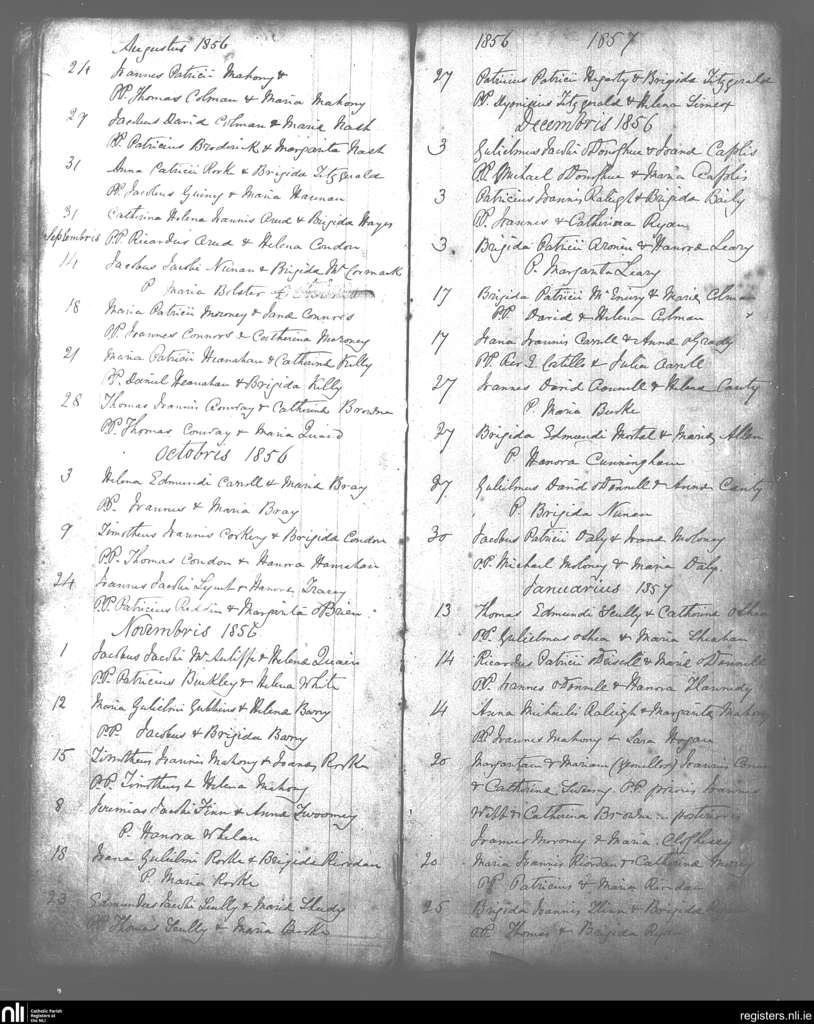 Augustus 1856
24 Joannes Patricii Mahony &
PP. Thomas Colman & Maria Mahony
29 Jacobus David Colman & Maria Nash
PP. Patricius Broderick & Margarita Nash
31 Anna Patricii Rork & Brigida Fitzgerald
PP. Jacobus Guiney & Maria
31 Cathrina Helena Joannis & Brigida Hayes
Septembris PP. Ricardus & Helena Condon
14 Jacobus Jacobi Nunan & Brigida McCormack
P Maria Bolster
18 Maria Patricii Moroney & Joana Connors
PP Joannes Connors & Catherina Moroney
21 Maria Patricii Heanahan & Catherina Killy
PP. Daniel Heanahan & Brigida Killy
28 Thomas Joannis Conway & Catherina
PP. Thomas Conway & Maria Quaid
Octobris 1856
3 Helena Edmundi Carroll & Maria Bray
PP. Joannes & Maria Bray
9 Timotheus Joannis Corkery & Brigida Condon
PP. Thomas Condon & Hanora Hanrahan
24 Joannes Jacobi Lynch & Hanora Tracey
PP. Patricius Reddin & Margarita OBrien
Novembris 1856
1 Jacobus Jacobi McAuliffe & Helena Quain
PP. Patricius Buckley & Helena White
12 Maria Gulielmi Gubbins & Helena Barry
PP. Jacobus & Brigida Barry
15 Timotheus Joannis Mahony & Joana Rorke
PP. Timotheus & Helena Mahony
8 Jeremias Jacobi Finn & Anna Twoomey
P. Hanora Whelan
18 Joana Gulielmi Rorke & Brigida Riordan
P. Maria Rorke
23 Edmundus Jacobi Scully & Maria
PP Thomas Scully & Maria Burke
1856 1857
27 Patricius Patricii Hogarty & Brigida Fitzgerald
PP. Dyonisius Fitzgerald & Helena
Decembris 1856
3 Gulielmus Jacobi ODonoghue & Joana
PP. Michael ODonoghue & Maria
3 Patricius Joannis Raleigh & Brigida Baily
PP. Joannes & Catherina Ryan
3 Brigida Patricii Cronin & Hanora Leary
P. Margarita Leary
17 Brigida Patricii McEniry & Maria Colman
PP. David & Helena Colman
17 Joana Joannis Carroll & Anna OGrady
PP. Costello & Julia Carroll
27 Joannes David Connell & Helena Canty
P Maria Burke
27 Brigida Edmundi & Maria Allen
P Hanora Cunningham
27 Gulielmus David ODonnell & Anna Canty
P. Brigida Nunan
30 Jacobus Patricii Daly & Joana Moloney
P.P. Michael Moloney & Maria Daly
Januarius 1857
13 Thomas Edmundi Scully & Catherina OShea
PP. Gulielmus OShea & Maria Sheahan
14 Ricardus Patricii & Maria ODonnell
PP. Joannes ODonnell & Hanora
14 Anna Michaelis Raleigh & Margarita Mahony
PP Joannes Mahony & Sara Hogan
20 Margaritam & Mariam (gemellos) Joannis
& Catherina PP. prioris Joannes
& Catherina Brown posterioris
Joannes Moroney & Maria
20 Maria Joannis Riordan & Catherina
PP Patricius & Maria Riordan
25 Brigida Joannis & Brigida
PP. Thomas & Brigida Ryan
nli Catholic Parish
Registers at
the NLI
registers.nli.ie